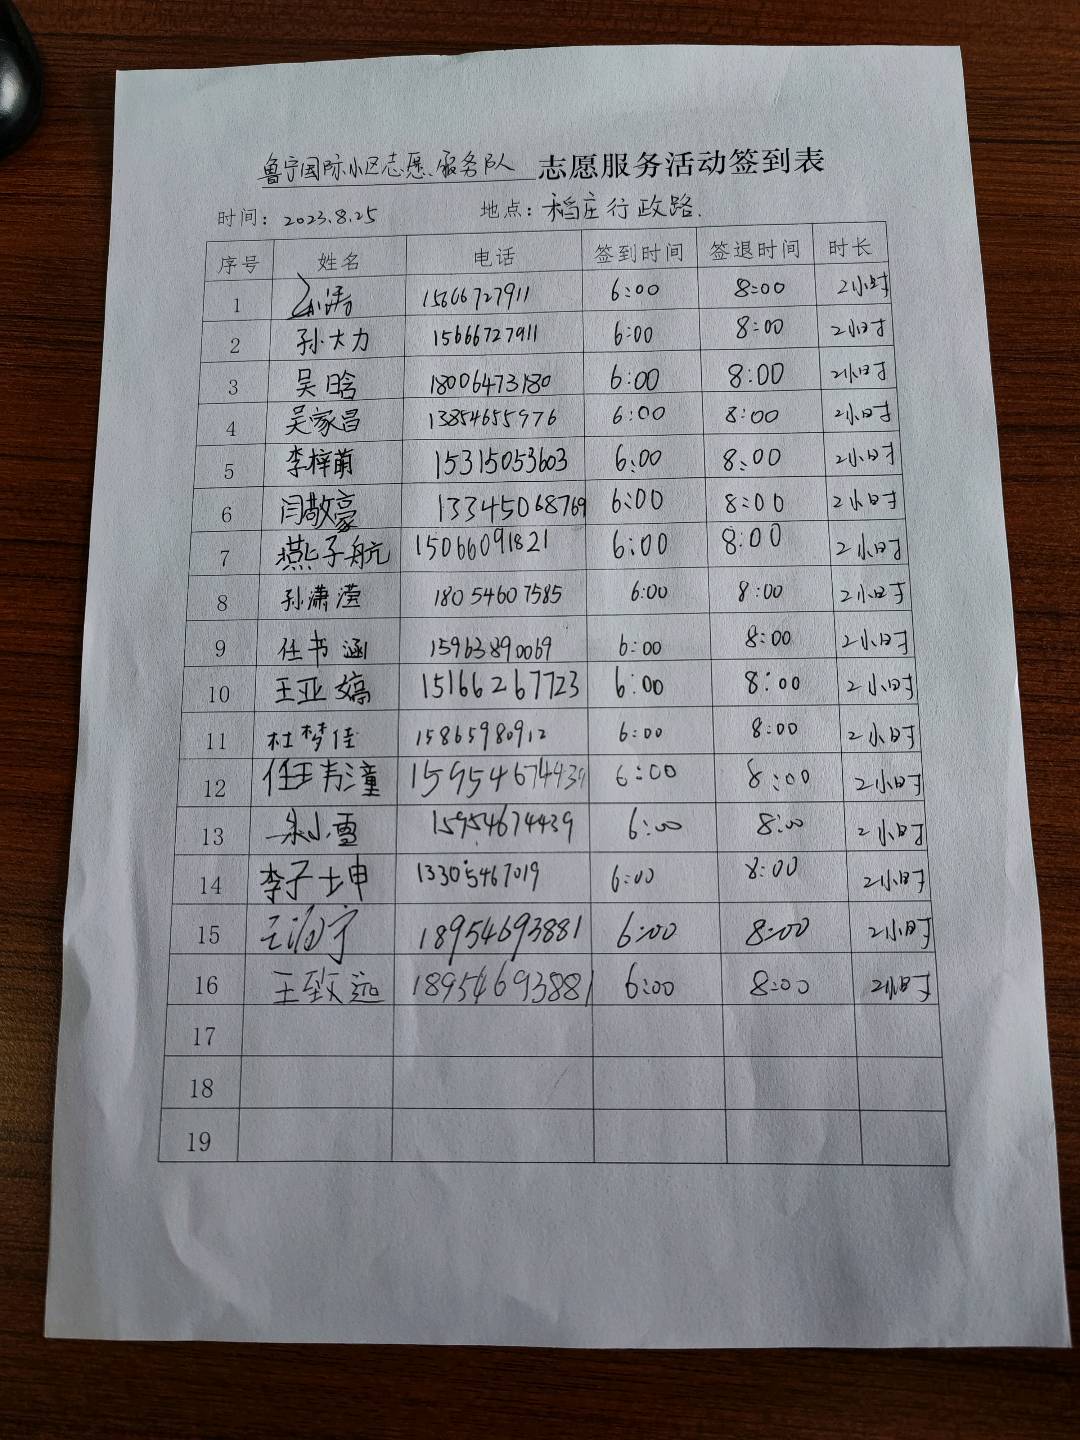 鲁宁国际小区志愿服务队 志愿服务活动签到表
时间: 2023.8.25 地点: 稻庄行政路.
序号 姓名 电话 签到时间 签退时间 时长
1 孙涛 15666727911 6:00 8:00 2小时
2 孙大力 15666727911 6:00 8:00 2小时
3 吴晗 18006473180 6:00 8:00 2小时
4 吴家昌 13854655976 6:00 8:00 2小时
5 李梓萌 15315053603 6:00 8:00 2小时
6 闫敬豪 13345068769 6:00 8:00 2小时
7 燕子航 15066091821 6:00 8:00 2小时
8 孙潇滢 18054607585 6:00 8:00 2小时
9 任书涵 15963890069 6:00 8:00 2小时
10 王亚嫡 15166267723 6:00 8:00 2小时
11 杜梦佳 15865980912 6:00 8:00 2小时
12 任王韦潼 15954674439 6:00 8:00 2小时
13 朱小雪 15954674439 6:00 8:00 2小时
14 李子坤 13305467019 6:00 8:00 2小时
15 王 宁 18954693881 6:00 8:00 2小时
16 王致远 18954693881 6:00 8:00 2小时
17
18
19